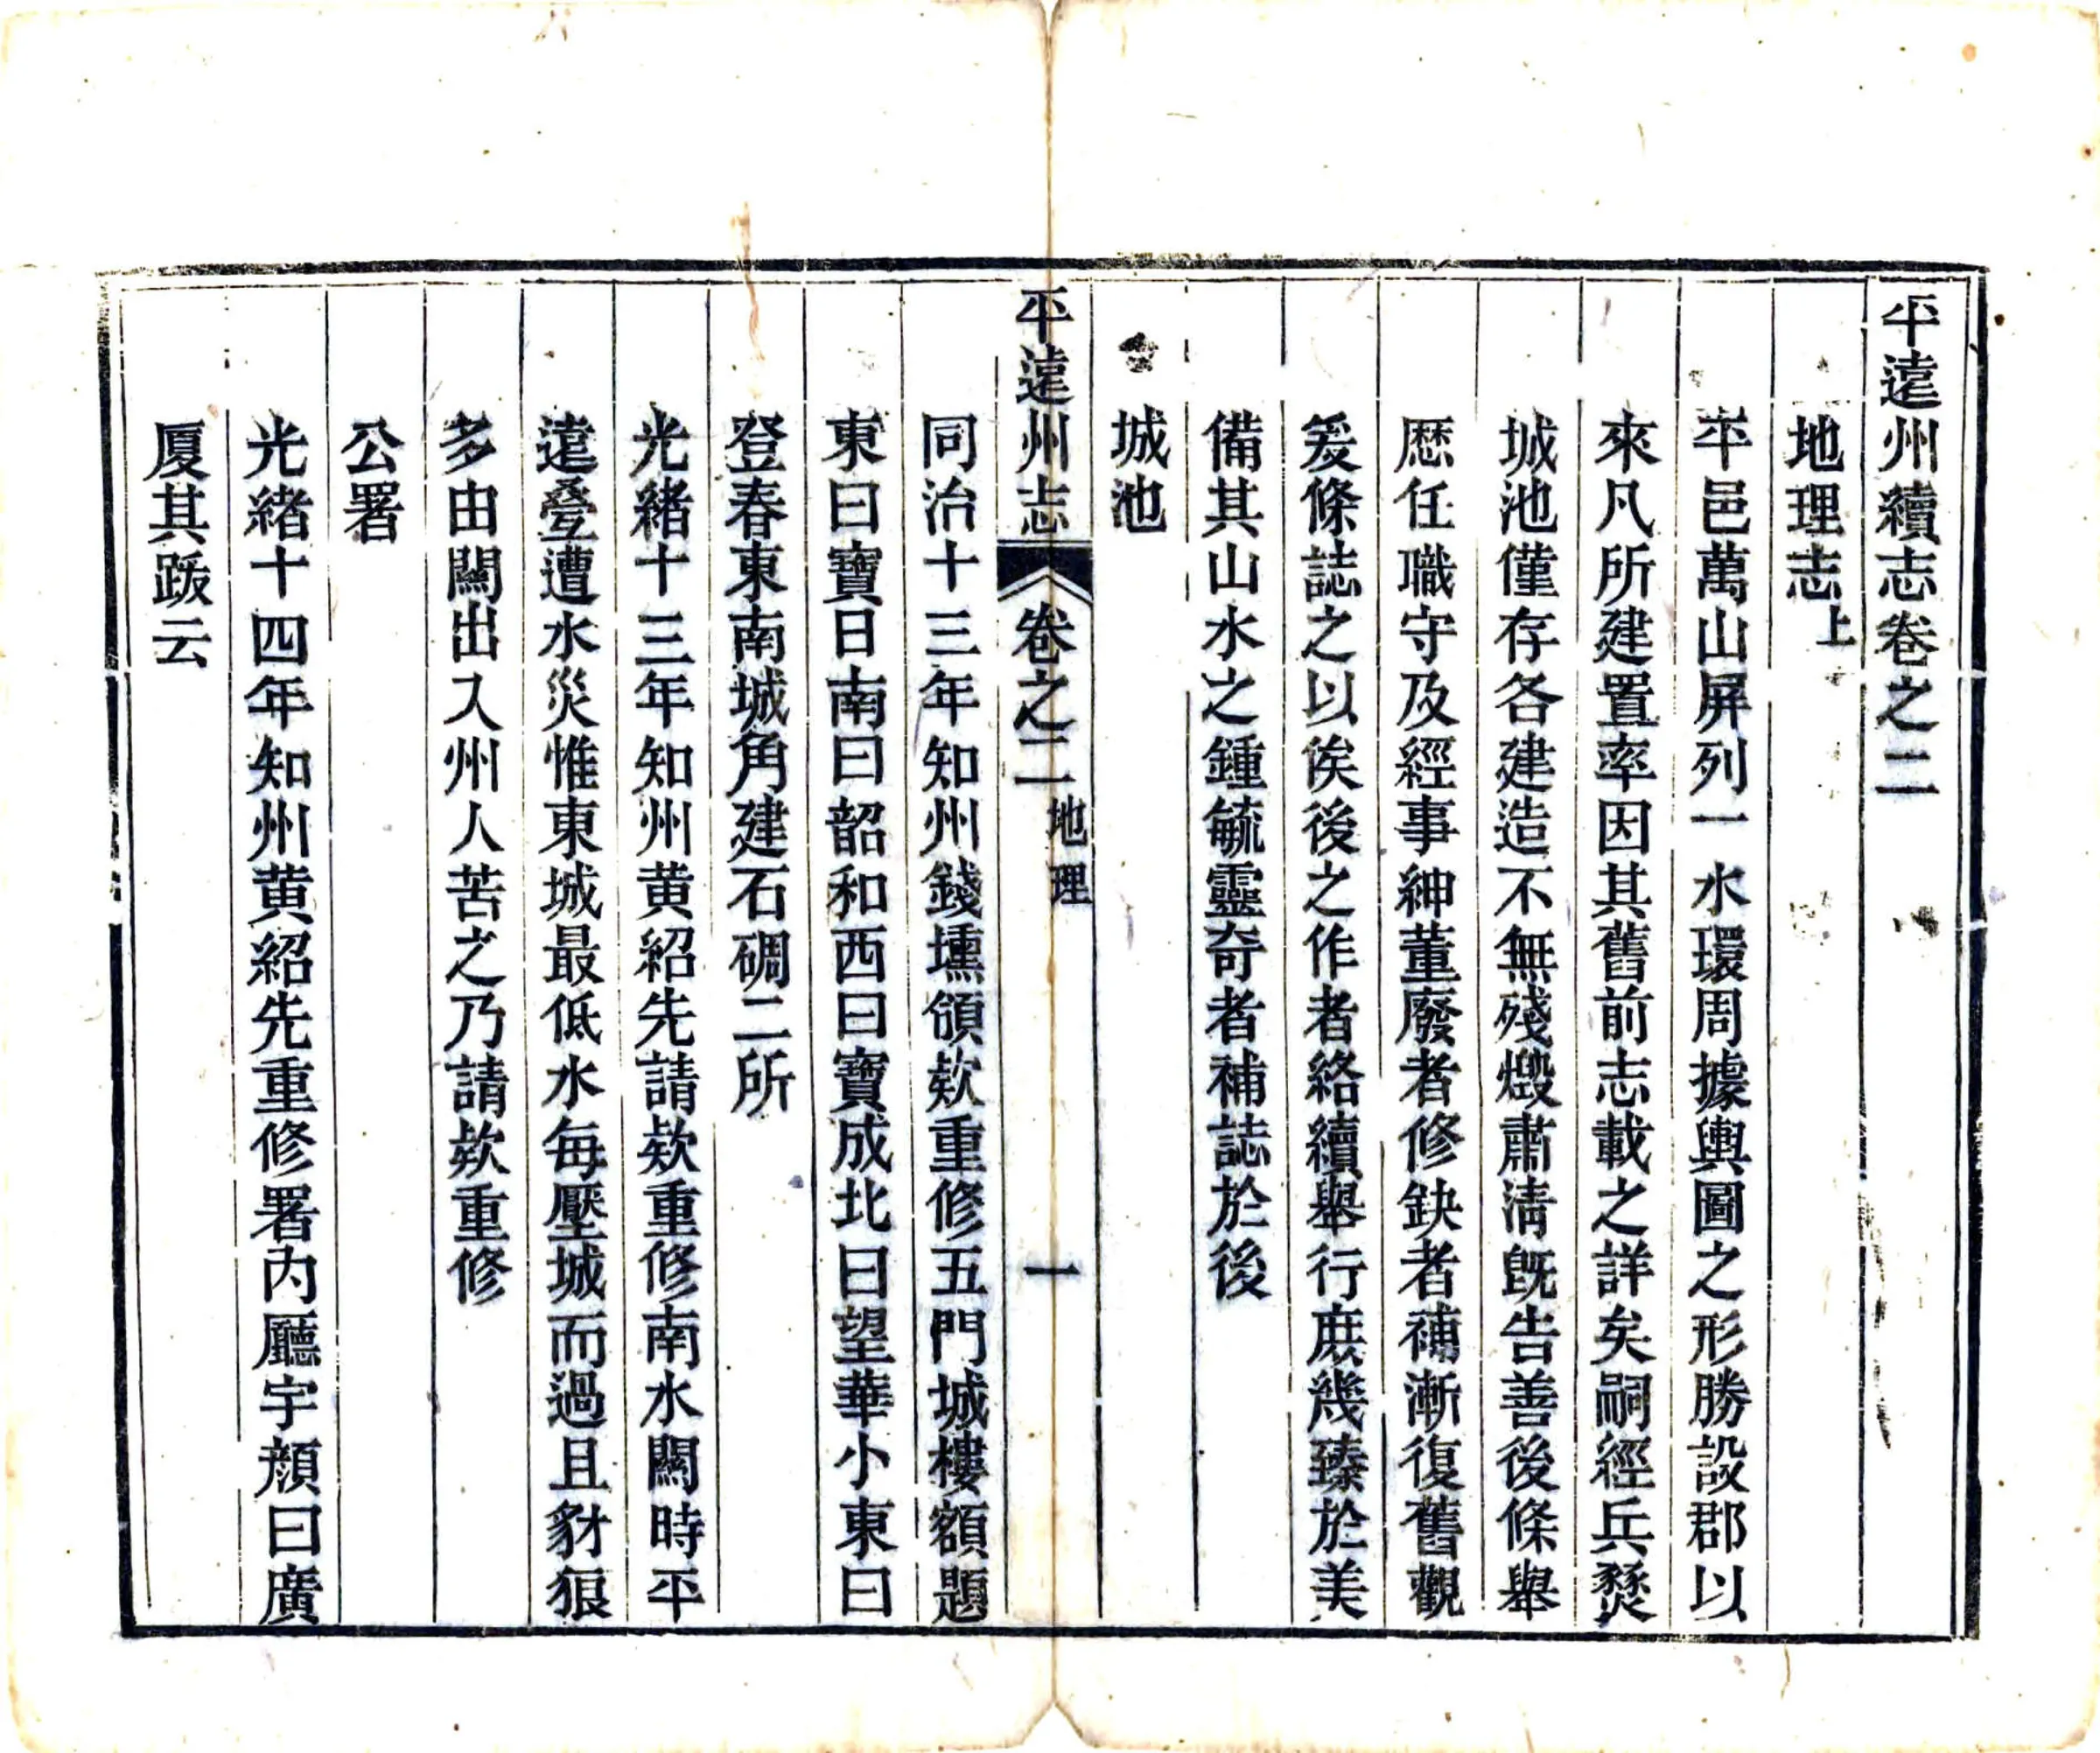 平遠州續志卷之二
地理志上
平邑萬山屏列一水環周據輿圖之形勝設郡以
來凡所建置率因其舊前志載之詳矣嗣經兵燹
城池僅存各建造不無殘燬肅淸旣告善後條舉
歷任職守及經事紳董廢者修缺者補漸復舊觀
爰條誌之以俟後之作者絡續舉行庶幾臻於美
備其山水之鍾毓靈奇者補誌於後
城池
平遠州志 卷之二 地理 一
同治十三年知州錢壎領欵重修五門城樓額題
東曰寶日南曰韶和西曰寶成北曰望華小東曰
登春東南城角建石碉二所
光緒十三年知州黄紹先請欵重修南水關時平
遠叠遭水災惟東城最低水每壓城而過且豺狼
多由關出入州人苦之乃請欵重修
公署
光緒十四年知州黄紹先重修署內廳宇顏曰廣
厦其跋云